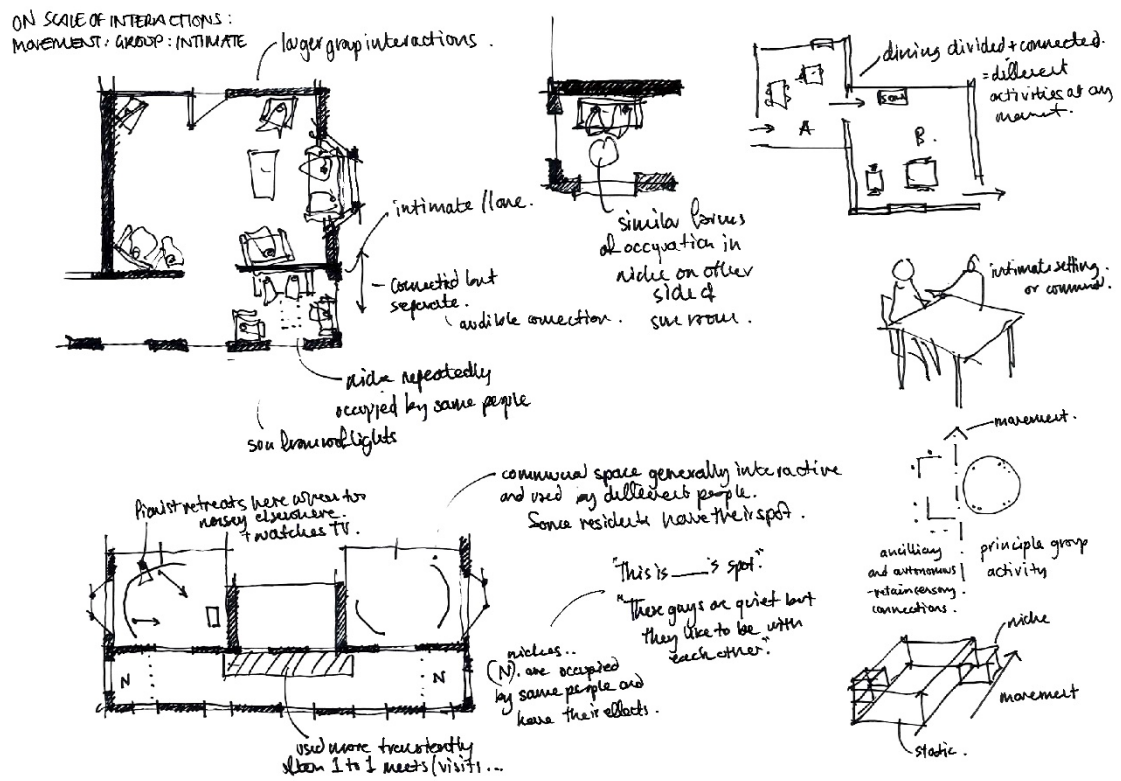 ON SCALE OF INTERACTIONS:
MOVEMENT: GROUP: INTIMATE
larger group interactions.
intimate / lone.
connected but
separate.
audible connection.
niche repeatedly
occupied by same people
from rooflights
similar forms
of occupation in
niche on other
side of
sun room.
dining divided + connected.
= different
activities at any
moment.
A
B.
intimate setting
or communal.
movement.
ancilliary
and autonomous
- retain sensory
connections.
principle group
activity
niche
movement
static.
Pianist retreats here when too
noisey elsewhere.
+ watches TV.
communal space generally interactive
and used by different people.
Some residents have their spot.
"This is ____'s spot."
"These guys are quiet but
they like to be with
each other."
niches..
(N). are occupied
by same people and
have their effects.
N
N
used more transiently
often 1 to 1 meets/visits...